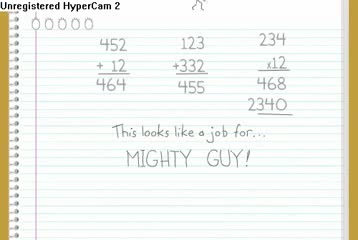 Unregistered HyperCam 2
452 123 234
+ 12 +332 x12
464 455 468
2340
This looks like a job for...
MIGHTY GUY!